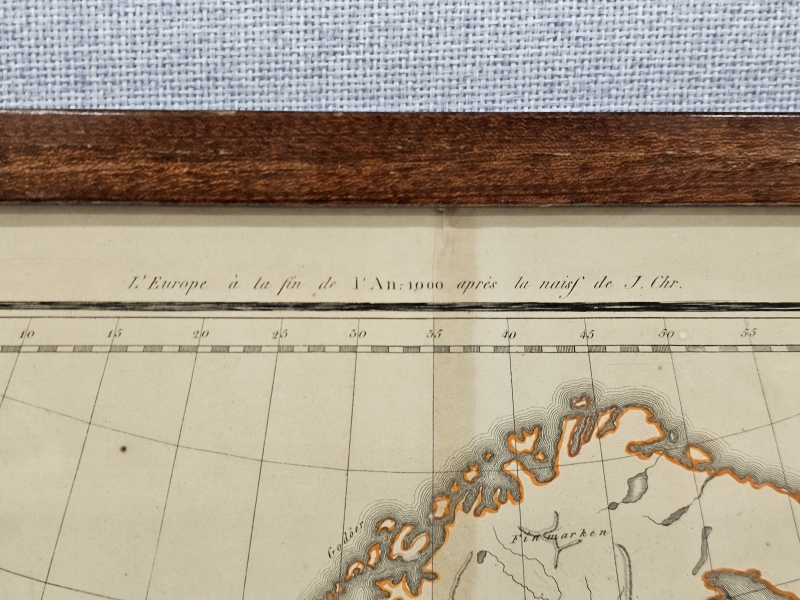 L'Europe à la fin de l'An: 1000 après la naiſſ de J. Chr.
10 15 20 25 30 35 40 45 50 55
Godöer
Finmarken